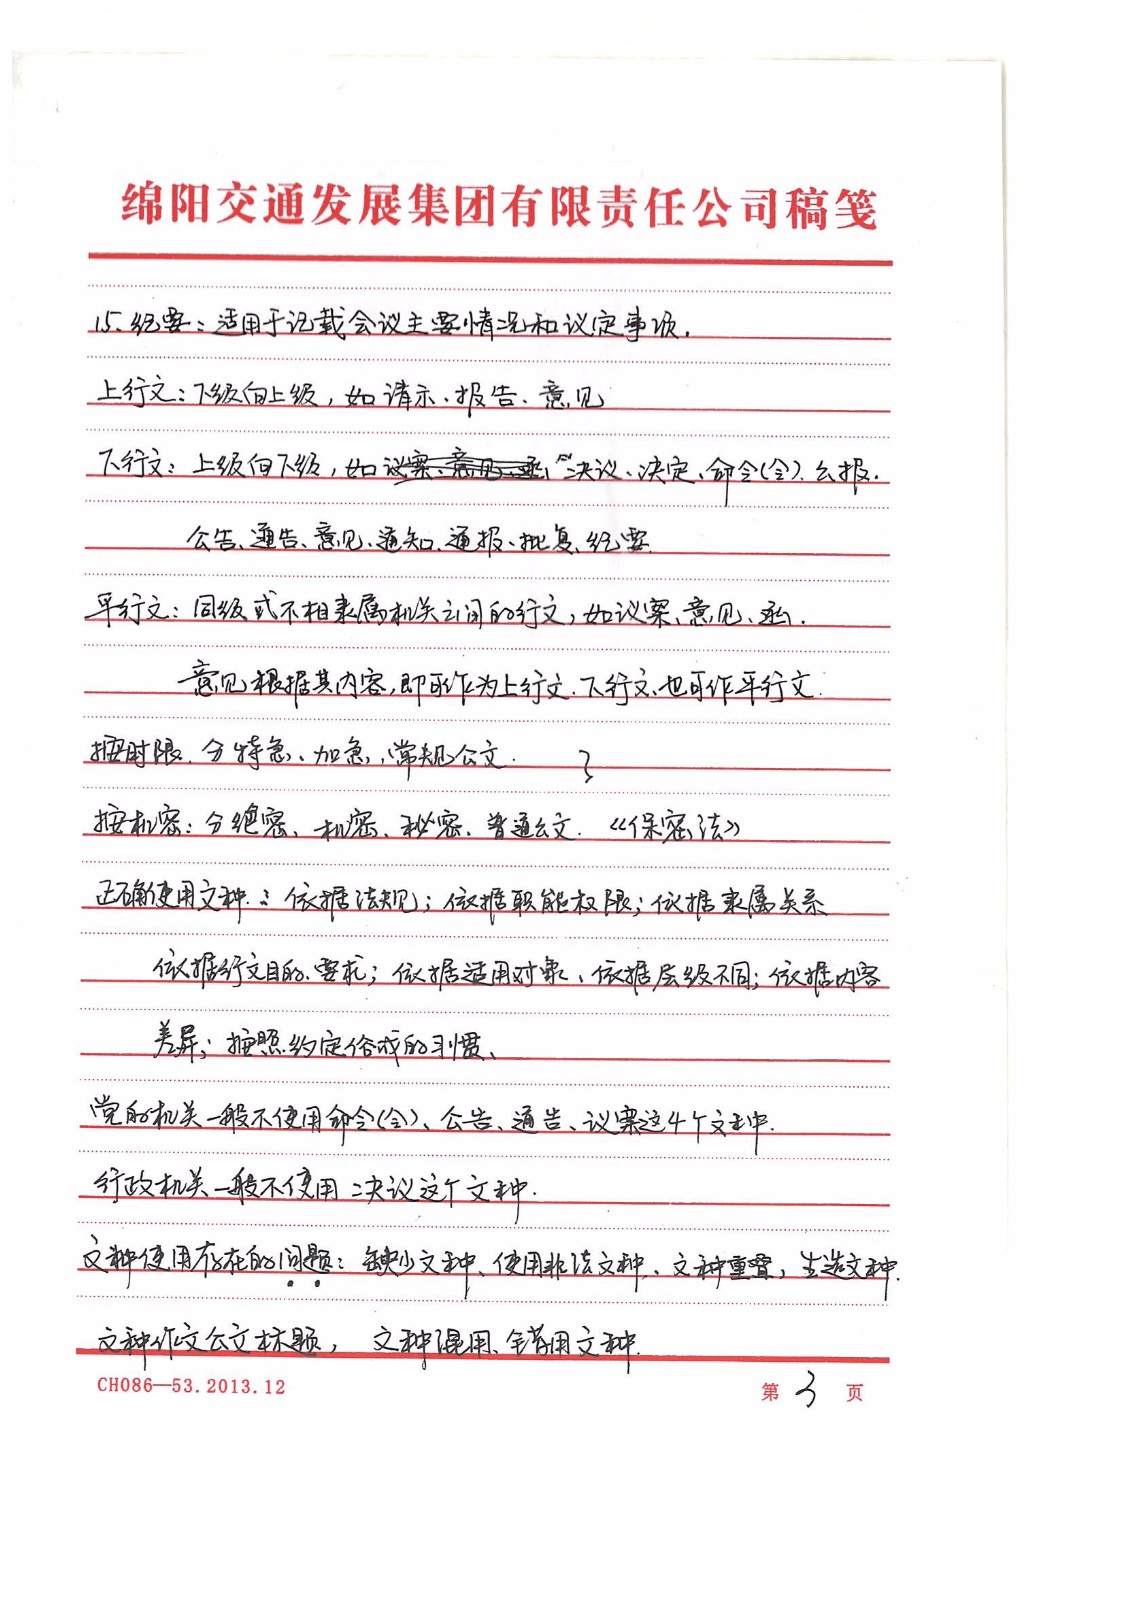 绵阳交通发展集团有限责任公司稿笺
15.纪要：适用于记载会议主要情况和议定事项.
上行文：下级向上级，如请示、报告、意见
下行文：上级向下级，如议案、意见、函 决议、决定、命令(令)、公报.
公告、通告、意见、通知、通报、批复、纪要
平行文：同级或不相隶属机关之间的行文，如议案、意见、函.
意见根据其内容，即可作为上行文、下行文、也可作平行文.
按时限，分特急、加急、常规公文.
按机密：分绝密、机密、秘密、普通公文. 《保密法》
正确使用文种：依据法规；依据职能权限；依据隶属关系
依据行文目的、要求；依据适用对象、依据层级不同；依据内容
差异；按照约定俗成的习惯、
党的机关一般不使用命令(令)、公告、通告、议案这4个文种.
行政机关一般不使用决议这个文种.
文种使用存在的问题：缺少文种、使用非法文种、文种重叠，生造文种.
文种作文公文标题， 文种混用、错用文种.
CH086—53.2013.12
第 3 页